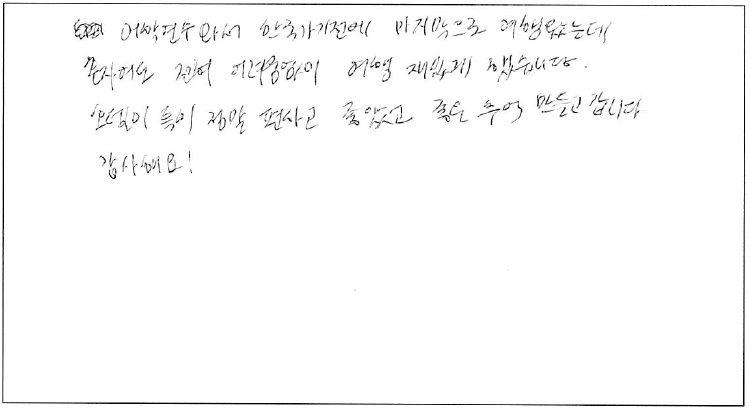 어학연수 와서 한국가기전에 마지막으로 여행왔는데
혼자여도 전혀 어려움없이 여행 재밌게 했습니다.
특히 정말 편하고 좋았고 좋은 추억 만들고 갑니다
감사해요!